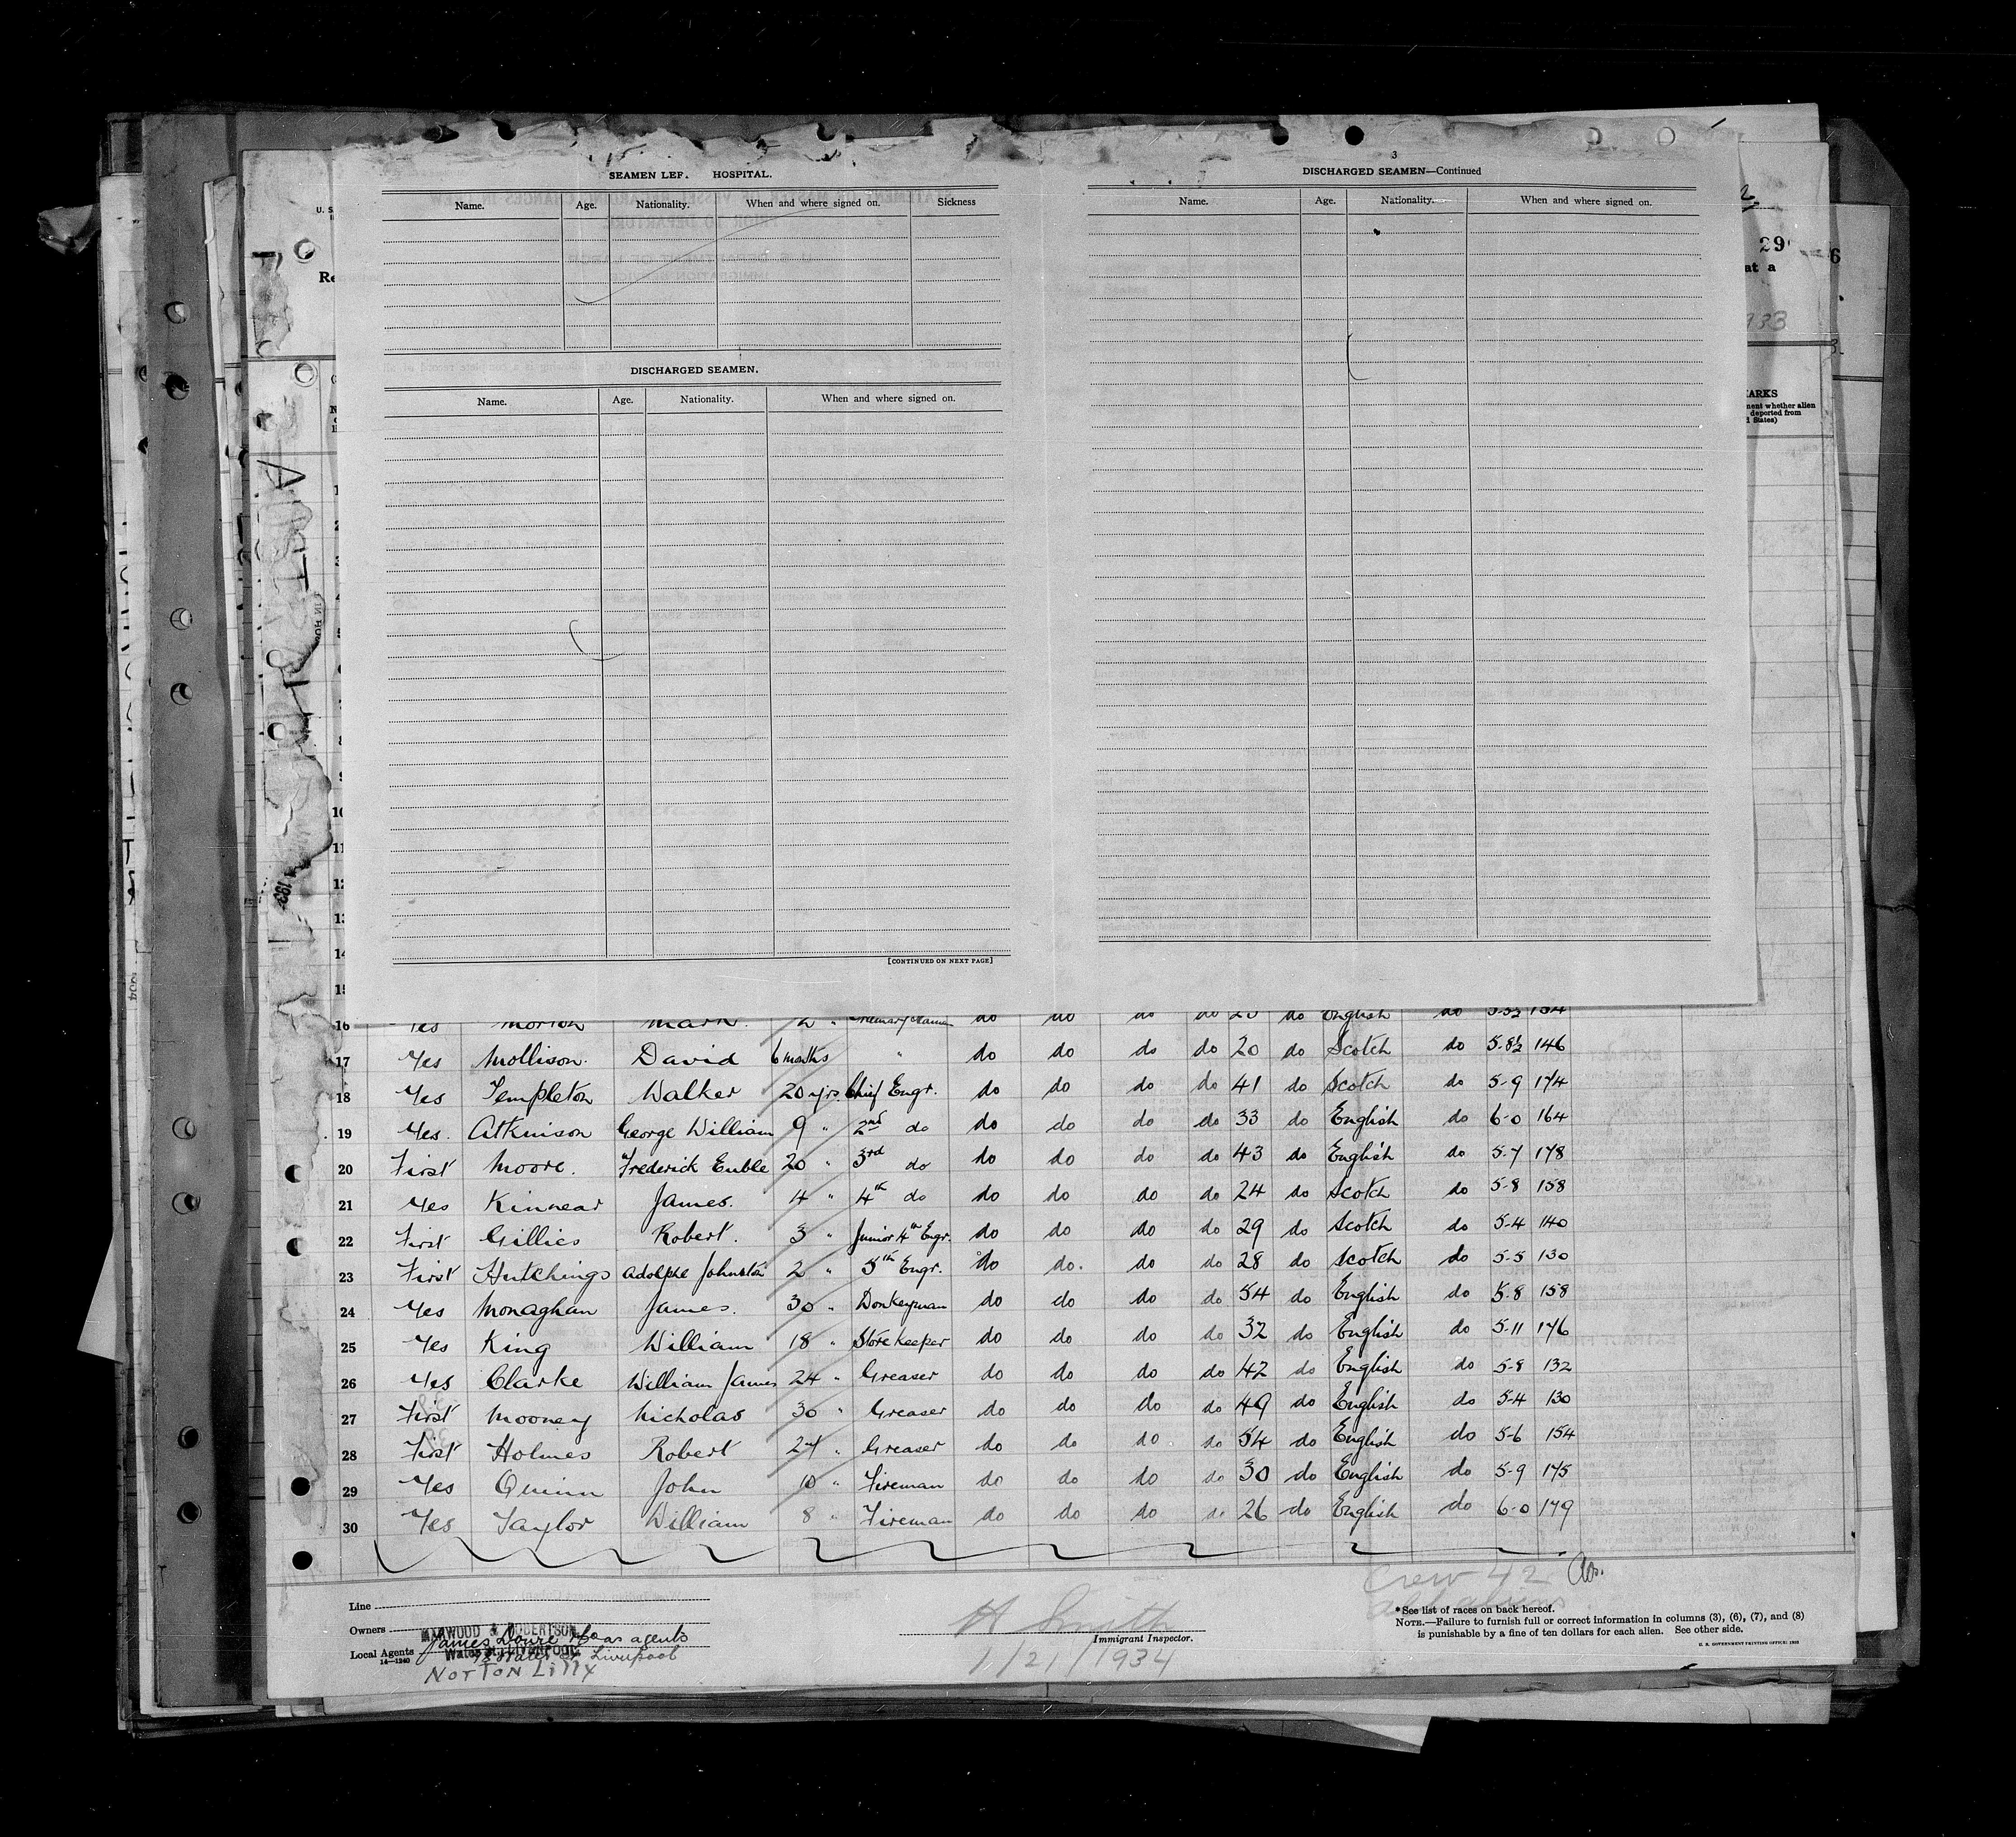 SEAMEN LEF. HOSPITAL.
Name. Age. Nationality. When and where signed on. Sickness
DISCHARGED SEAMEN.
Name. Age. Nationality. When and where signed on.
[CONTINUED ON NEXT PAGE]
3
DISCHARGED SEAMEN—Continued
Name. Age. Nationality. When and where signed on.
U. S.
Re
29
6
at a
933
ARKS
ment whether alien
deported from
d States)
10
11
12
13
14
15
16 Yes Morton Mark. 2 " do do do do do English do 154
17 Yes Mollison. David 6 months " do do do do 20 do Scotch do 5-8½ 146
18 Yes Templeton Walker 20 yrs. Chief Engr. do do do do 41 do Scotch do 5-9 174
19 Yes. Atkinson George William 9 " 2nd do do do do do 33 do English do 6-0 164
20 First Moore. Frederick 20 " 3rd do do do do do 43 do English do 5-7 178
21 Yes Kinnear James. 4 " 4th do do do do do 24 do Scotch do 5-8 158
22 First Gillies Robert. 3 " Junior 4th Engr. do do do do 29 do Scotch do 5-4 140
23 First Hutchings Adolphe Johnston 2 " 5th Engr. do do. do do 28 do Scotch do 5-5 130
24 Yes Monaghan James. 30 " Donkeyman do do do do 54 do English do 5-8 158
25 Yes King William 18 " Storekeeper do do do do 32 do English do 5-11 176
26 Yes Clarke William James 24 " Greaser do do do do 42 do English do 5-8 132
27 First Mooney Nicholas 30 " Greaser do do do do 49 do English do 5-4 130
28 First Holmes Robert 27 " Greaser do do do do 54 do English do 5-6 154
29 Yes Quinn John 10 " Fireman do do do do 30 do English do 5-9 175
30 Yes Taylor William 8 " Fireman do do do do 26 do English do 6-0 179
Crew 42
Line
Owners
MARWOOD & ROBERTSON
James as agents
Local Agents
Water St. LIVERPOOL
Liverpool
14—1240
NORTON LILLY
H Smith
Immigrant Inspector.
1/21/1934
*See list of races on back hereof.
NOTE.—Failure to furnish full or correct information in columns (3), (6), (7), and (8)
is punishable by a fine of ten dollars for each alien. See other side.